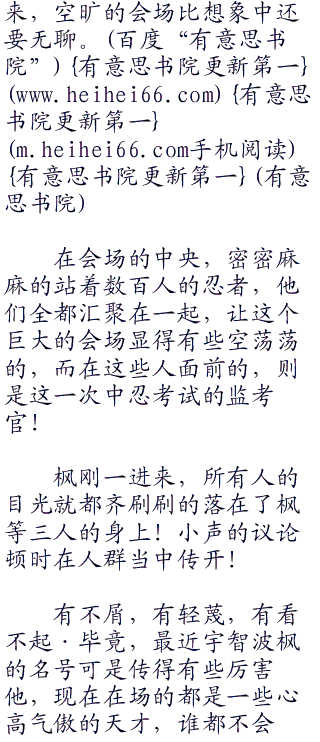 来，空旷的会场比想象中还
要无聊。(百度“有意思书
院”) {有意思书院更新第一}
(www.heihei66.com) {有意思
书院更新第一}
(m.heihei66.com手机阅读)
{有意思书院更新第一} (有意
思书院)
在会场的中央，密密麻
麻的站着数百人的忍者，他
们全都汇聚在一起，让这个
巨大的会场显得有些空荡荡
的，而在这些人面前的，则
是这一次中忍考试的监考
官！
枫刚一进来，所有人的
目光就都齐刷刷的落在了枫
等三人的身上！小声的议论
顿时在人群当中传开！
有不屑，有轻蔑，有看
不起·毕竟，最近宇智波枫
的名号可是传得有些厉害
他，现在在场的都是一些心
高气傲的天才，谁都不会